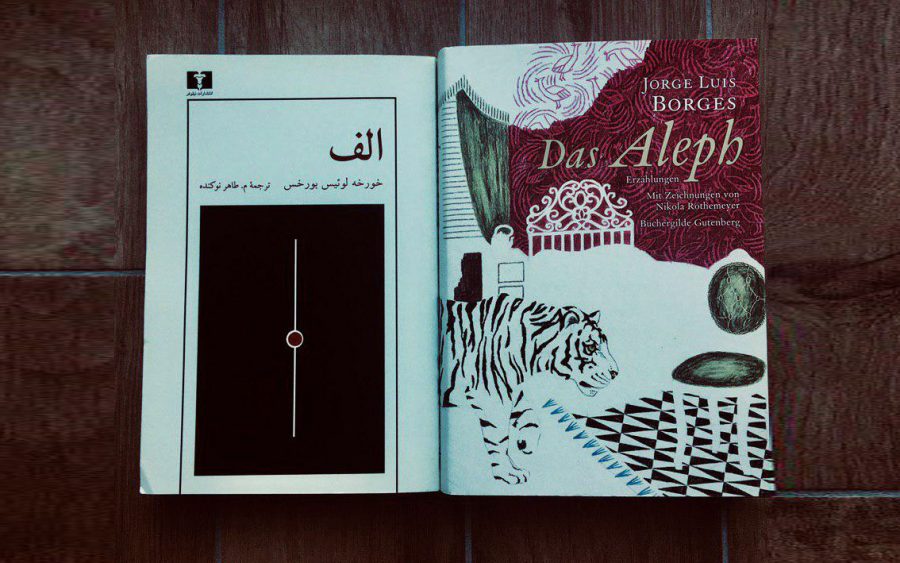 انتشارات نیلوفر
الف
خورخه لوئیس بورخس    ترجمهٔ م. طاهر نوکنده
JORGE LUIS
BORGES
Das Aleph
Erzählungen
Mit Zeichnungen von
Nikola Rothemeyer
Büchergilde Gutenberg